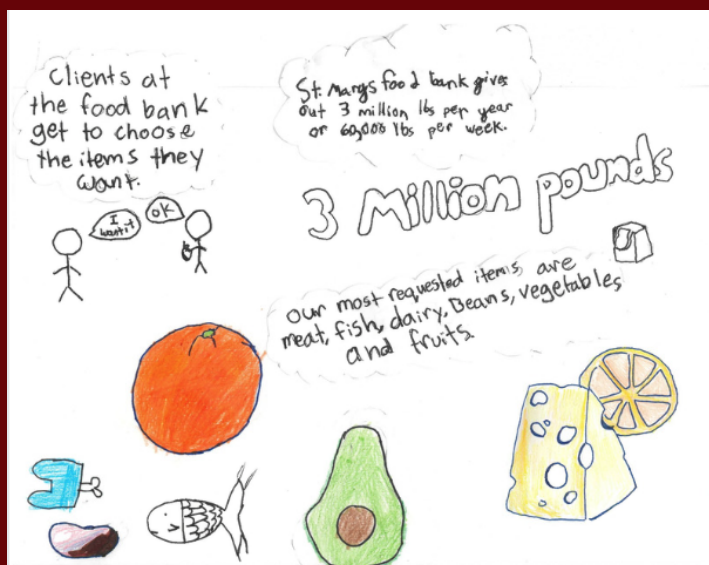 Clients at
the food bank
get to choose
the items they
want.
I
want it
OK
St. Marys food bank gives
out 3 million lbs per year
or 60,000 lbs per week.
3 Million pounds
our most requested items are
meat, fish, dairy, Beans, vegetables
and fruits.